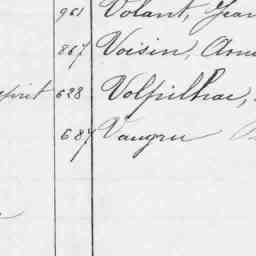 961 Volant, Jean
867 Voisin,
628 Volpilhac,
687 Vaugru